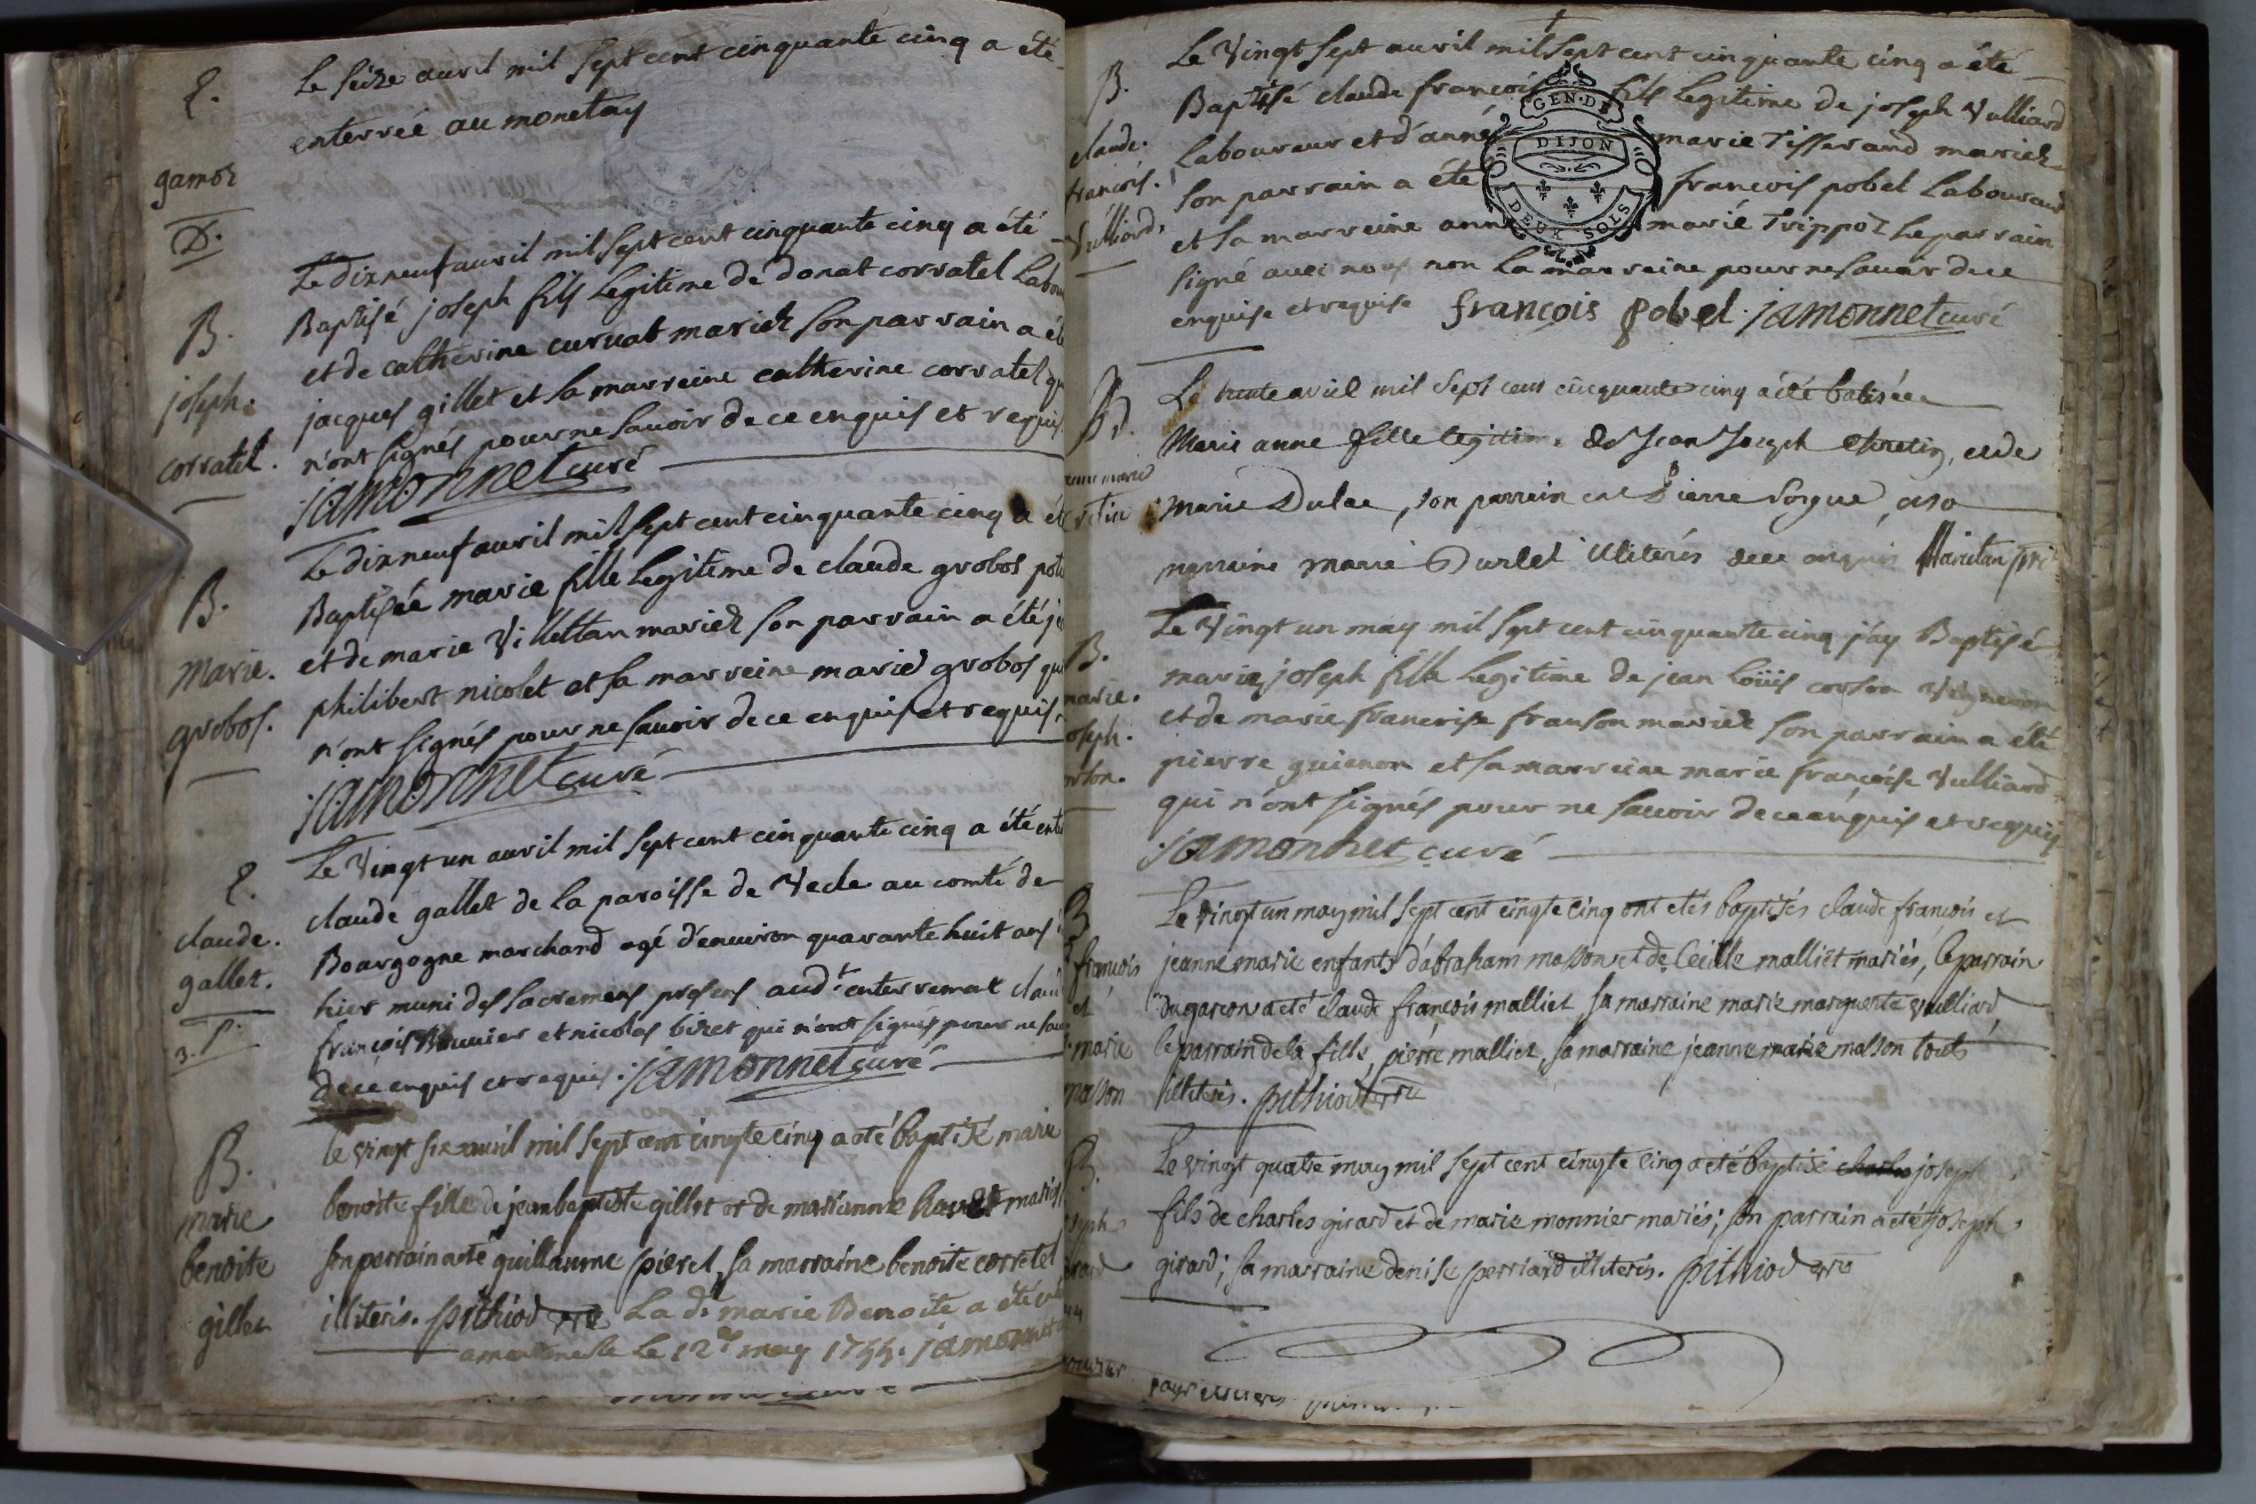 E.
gamoz
D.
Le seize avril mil sept cent cinquante cinq a été
enterrée au monetay
B.
joseph.
corratel.
Le dixneuf avril mil sept cent cinquante cinq a été
Baptisé joseph fils legitime de donat corratel Labou
et de catherine curvat mariez son parrain a ét
jacques gillet et sa marreine catherine corratel qu
n'ont signés pour ne savoir de ce enquis et requis
jamonnet curé
B.
Marie.
grobos.
Le dixneuf avril mil sept cent cinquante cinq a ét
Baptisée marie fille legitime de claude grobos
et de marie Villettan mariez son parrain a été
philibert nicolet et sa marreine marie grobos qu
n'ont signés pour ne savoir de ce enquis et requis.
jamonnet curé
E.
claude.
gallet.
3.
Le Vingt un avril mil sept cent cinquante cinq a été ente
claude gallet de la paroisse de Vecle au comté de
Bourgogne marchand agé d'environ quarante huit ans
hier muni des sacremens presens aud.t enterrement clau
francois et nicolas bizet qui n'ont signés pour ne sav
de ce enquis et requis. jamonnet curé
B.
marie
benoite
gillet
le vingt six avril mil sept cent cinqte cinq a été baptisé marie
benoite fille de jean baptiste gillet et de marianne mariés
son parrain a eté guillaume pierel, sa marraine benoite corretel
illiterés. pithiod
La d. marie Benoite a été
le 12 may 1755. jamonnet
B.
claude.
francois.
Vulliard.
Le Vingt sept avril mil sept cent cinquante cinq a été
Baptisé claude francois fils legitime de joseph Vulliard
Laboureur et d'anne marie Tisserand mariez
son parrain a été francois pobel Laboureur
et sa marreine anne marie Trippoz Le parrain
signé avec nous non la marraine pour ne savoir de ce
enquise et requise françois pobel. jamonnet curé
GEN. DE
DIJON
DEUX SOLS
B.
anne marie
Le trente avril mil sept cent cinquante cinq a été batisée
Marie anne fille legitime de Jean Joseph Chretin, et de
Marie Dulac, son parrein est Pierre Sorgue, et sa
marraine marie Durlet illiterés de ce enquis
B.
marie.
oseph.
orson.
Le Vingt un may mil sept cent cinquante cinq j'ay Baptisé
marie joseph fille legitime de jean Loüis corson Vigneron
et de marie francoise franson mariez son parrain a été
pierre guienon et sa marreine marie françoise Vulliard
qui n'ont signés pour ne savoir de ce enquis et requis
jamonnet curé
B
françois
et
marie
masson
Le vingt un may mil sept cent cinqte cinq ont etés baptisés claude francois et
jeanne marie enfants d'abraham masson et de Cécille malliet mariés, le parrain
du garcon a eté claude françois malliet sa marraine marie marguerite vulliard
le parrain de la fille, pierre malliet, sa marraine jeanne marie masson touts
illiterés. pithiod
B.
oseph
irard
Le vingt quatre may mil sept cent cinqte cinq a eté baptisé charles joseph
fils de charles girard et de marie monnier mariés; son parrain a eté joseph
girard; sa marraine denise perriard illiterés. pithiod